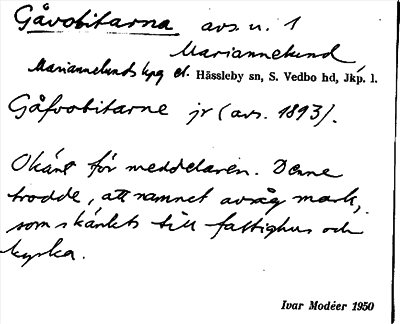 Gåvobitarna avs. u. 1
Mariannelund,
Mariannelunds kpg el. Hässleby sn, S. Vedbo hd, Jkp. l.
Gåfvobitarne jr (avs. 1893).
Okänt för meddelaren. Denne
trodde, att namnet avsåg mark,
som skänkts till fattighus och
kyrka.
Ivar Modéer 1950